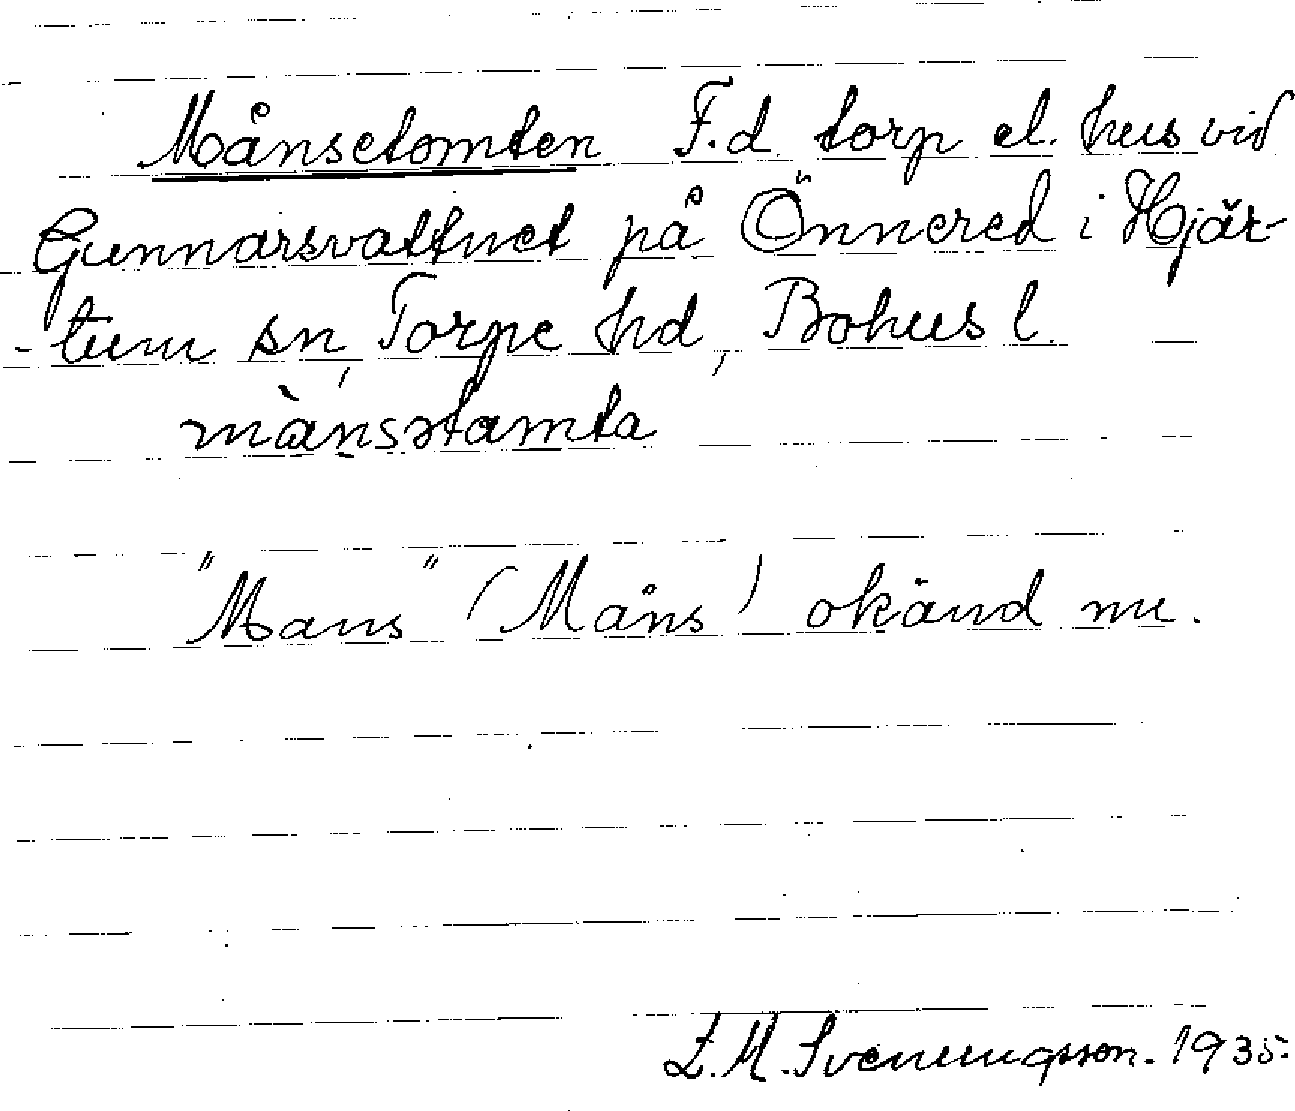 Månsetomten F.d. torp el. hus vid
Gunnarsvattnet på Önnered i Hjär-
-tum sn, Torpe hd, Bohus l.
mànsətamta
"Mans" (Måns) okänd nu.
L.M. Svenungsson. 1935.